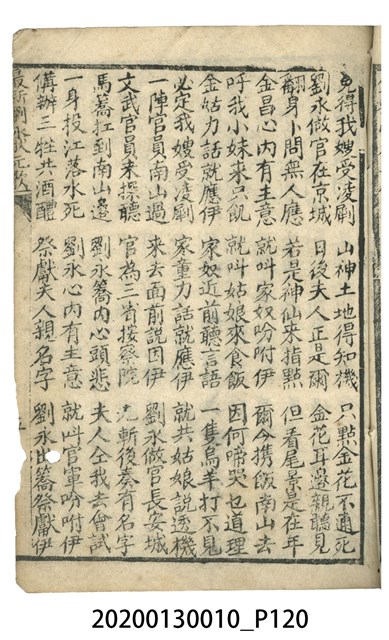 免得我嫂受凌剮　山神土地得知機　只點金花不通死
劉永做官在京城　日後夫人正是爾　金花耳邊親聽見
翻身卜問無人應　若是神仙來指點　但看尾景是在年
金昌心內有主意　就叫家奴吩咐伊　爾今携飯南山去
呼我小妹來只飢　就叫姑娘來食飯　因何啼哭乜道理
金姑力話就應伊　家奴近前聽言語　一隻烏羊打不見
必定我嫂受凌剮　家童力話就應伊　就共姑娘說透機
一陣官員南山過　來去面前說因伊　劉永做官長安城
文武官員未探聽　官為三省按察院　先斬後奏有名字
馬蕎扛到南山邊　劉永蕎內心頭悲　夫人仝我去會試
一身投江落水死　劉永心內有主意　就呌官軍吩咐伊
備辦三牲共酒醴　祭獻夫人親名字　劉永出蕎祭獻伊
最新劉永
20200130010_P120